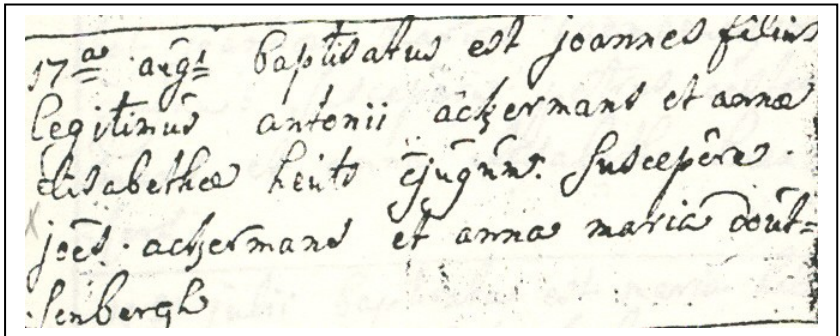 17ª augˢ baptisatus est joannes filius
legitimus antonii ackermans et annæ
elisabethæ heuts c̄jugūm. suscepêre.
joēs. ackermans et anna maria oout=
senbergh